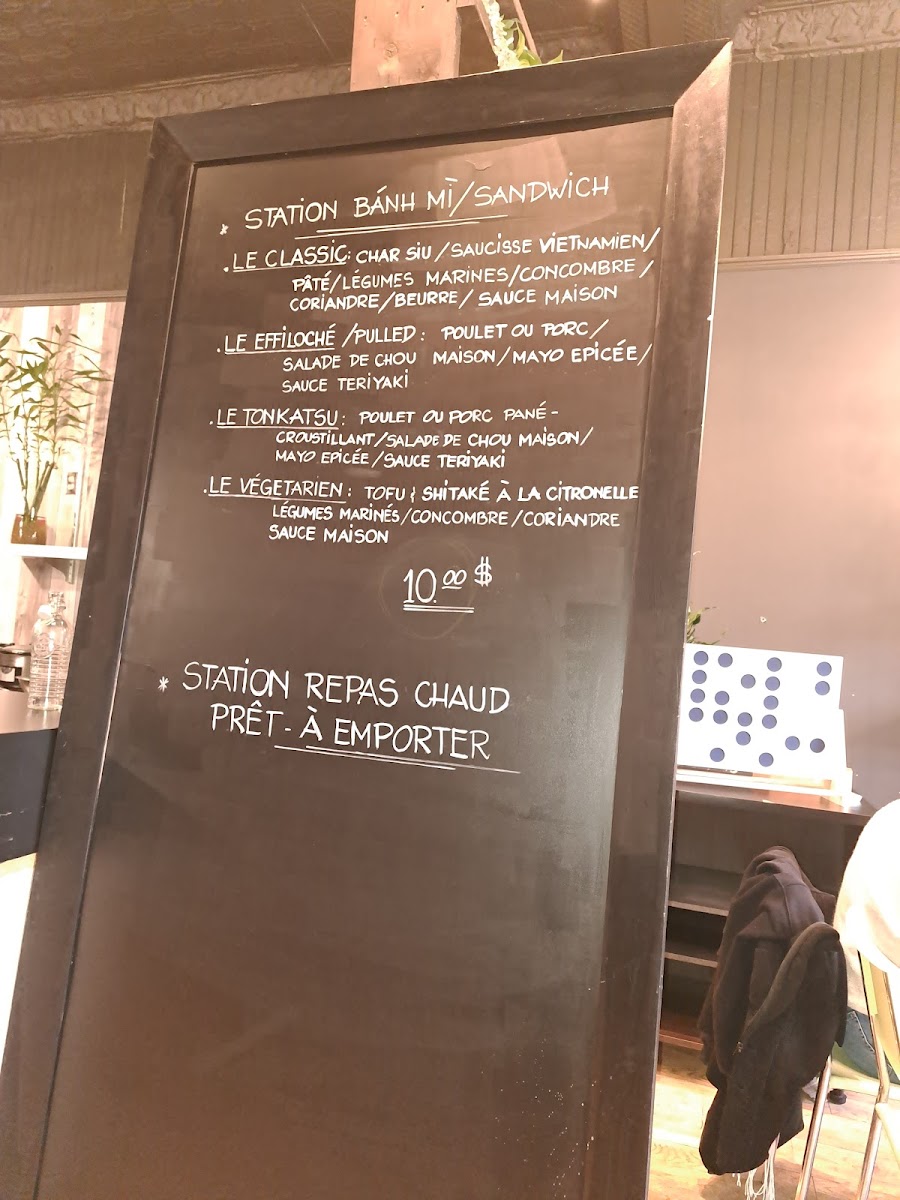 * STATION BÁNH MÌ/SANDWICH
. LE CLASSIC: CHAR SIU/SAUCISSE VIETNAMIEN/
PÂTÉ/LÉGUMES MARINES/CONCOMBRE/
CORIANDRE/BEURRE/ SAUCE MAISON
. LE EFFILOCHÉ /PULLED: POULET OU PORC/
SALADE DE CHOU MAISON/MAYO EPICÉE/
SAUCE TERIYAKI
. LE TONKATSU: POULET OU PORC PANÉ-
CROUSTILLANT/SALADE DE CHOU MAISON/
MAYO EPICÉE/SAUCE TERIYAKI
. LE VÉGETARIEN: TOFU & SHITAKÉ À LA CITRONELLE
LÉGUMES MARINÉS/CONCOMBRE/CORIANDRE
SAUCE MAISON
10.00 $
* STATION REPAS CHAUD
PRÊT-À EMPORTER